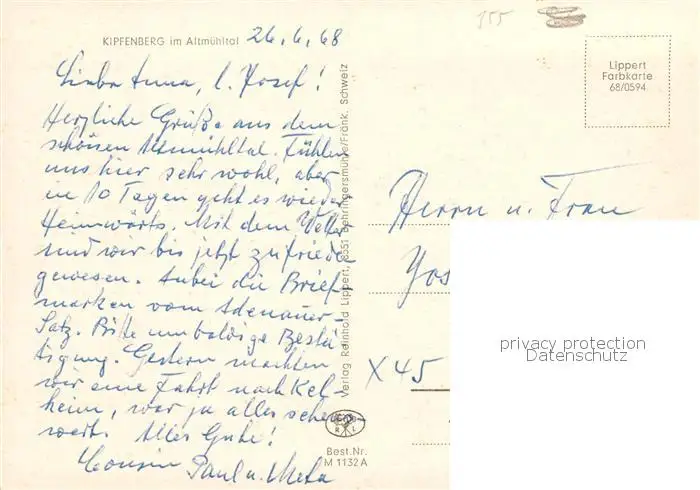 KIPFENBERG im Altmühltal 26.6.68
Liebe Anna, l. Josef!
Herzliche Grüße aus dem
schönen Altmühltal. Fühlen
uns hier sehr wohl, aber
in 10 Tagen geht es wieder
Heimwärts. Mit dem Wetter
sind wir bis jetzt zufrieden
gewesen. Anbei die Brief-
marken vom Adenauer-
Satz. Bitte um baldige Bestä-
tigung. Gestern machten
wir eine Fahrt nach Kel-
heim, war ja alles sehens-
wert. Alles Gute!
Cousin Paul u. Meta
Verlag Reinhold Lippert, 8551 Behringersmühle/Fränk. Schweiz
R L
Best.Nr.
M 1132 A
355
Lippert
Farbkarte
68/0594
Herrn u. Frau
Jos
X45
privacy protection
Datenschutz